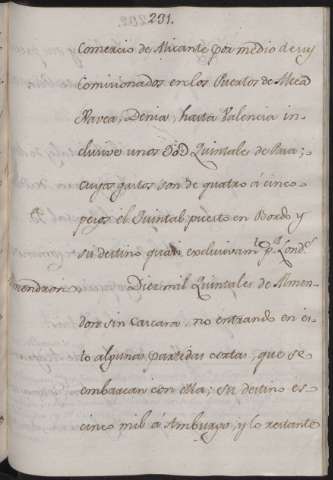 231.
Comercio de Alicante por medio de sus
Comisionados en los Puertos de
Xavea, Denia, hasta Valencia in-
clusive unos Quintales de Pasa;
cuyos gastos son de quatro á cinco
pesos el Quintal puesto en Bordo y
su destino quasi exclusivam.te p.a Lond.s
Almendron Diez mil Quintales de Almen-
dron sin cascara, no entrando en es-
to algunas partidas cortas, que se
embarcan con ella; su destino es
cinco mil á Amburgo, y lo restante